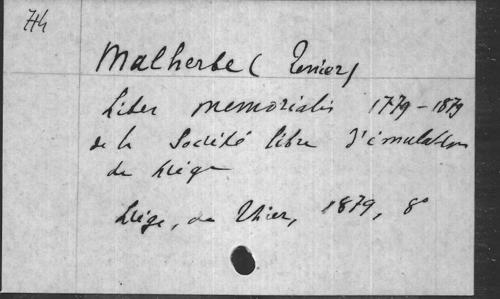 Malherbe (Renier)
Liber memorialis 1779-1879
de la Société libre d'émulation
de Liége
Liége, de Thier, 1879, 8º